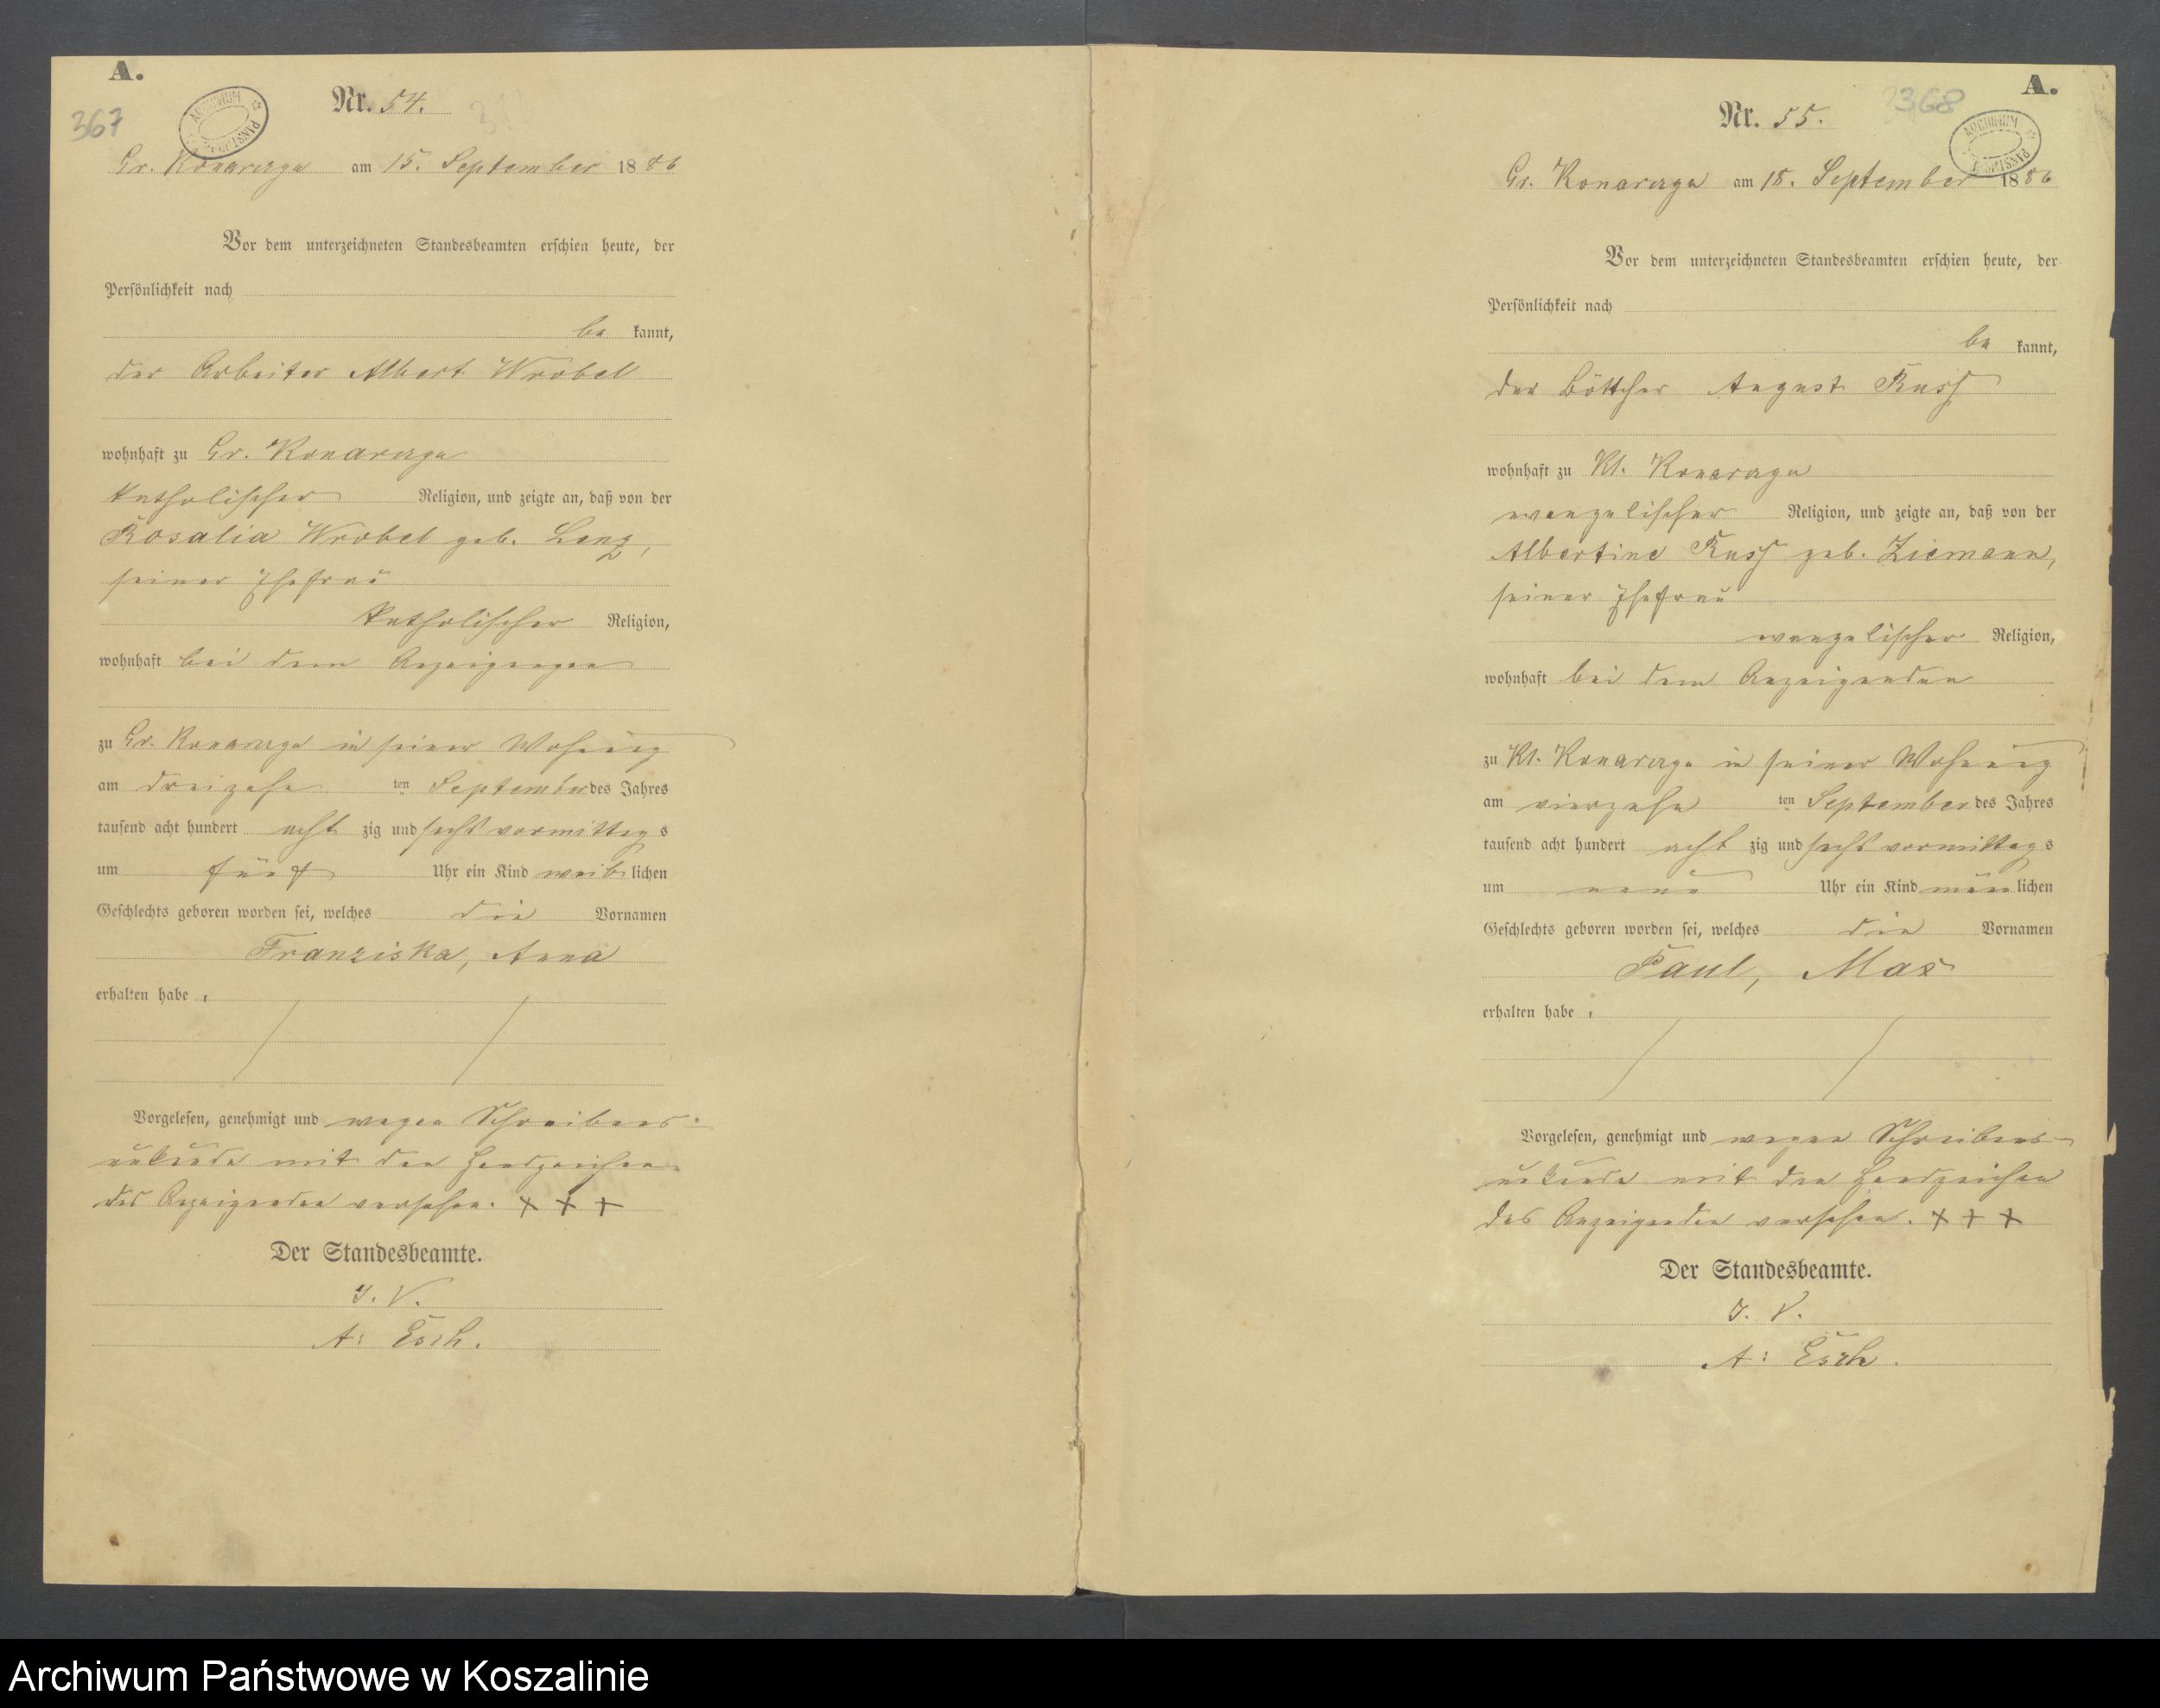 A.
367
Nr. 54.
Gr. Konarczyn am 15. September 1886
Vor dem unterzeichneten Standesbeamten erschien heute, der
Persönlichkeit nach
be kannt,
der Arbeiter Albert Wrobel
wohnhaft zu Gr. Konarczyn
katholischer Religion, und zeigte an, daß von der
Rosalia Wrobel geb. Lenz,
seiner Ehefrau
katholischer Religion,
wohnhaft bei dem
zu Gr. Konarczyn in seiner Wohnung
am dreizehn ten September des Jahres
tausend acht hundert acht zig und sechs vormittag s
um fünf Uhr ein Kind weib lichen
Geschlechts geboren worden sei, welches die Vornamen
Franziska, Anna
erhalten habe .
Vorgelesen, genehmigt und wegen Schreibens-
unkunde mit den Handzeichen
des Anzeigenden versehen. + + +
Der Standesbeamte.
I. V.
A: Esch.
A.
368
ARCHIWUM PAŃSTWOWE
Nr. 55.
Gr. Konarczyn am 18. September 1886
Vor dem unterzeichneten Standesbeamten erschien heute, der
Persönlichkeit nach
be kannt,
der Böttcher August Russ
wohnhaft zu Kl. Konarczyn
evangelischer Religion, und zeigte an, daß von der
Albertine Russ geb. Ziemann,
seiner Ehefrau
evangelischer Religion,
wohnhaft bei dem Anzeigenden
zu Kl. Konarczyn in seiner Wohnung
am vierzehn ten September des Jahres
tausend acht hundert acht zig und sechs vormittag s
um neun Uhr ein Kind männ lichen
Geschlechts geboren worden sei, welches die Vornamen
Paul, Max
erhalten habe .
Vorgelesen, genehmigt und wegen Schreibens-
unkunde mit den Handzeichen
des Anzeigenden versehen. + + +
Der Standesbeamte.
I. V.
A: Esch.
Archiwum Państwowe w Koszalinie